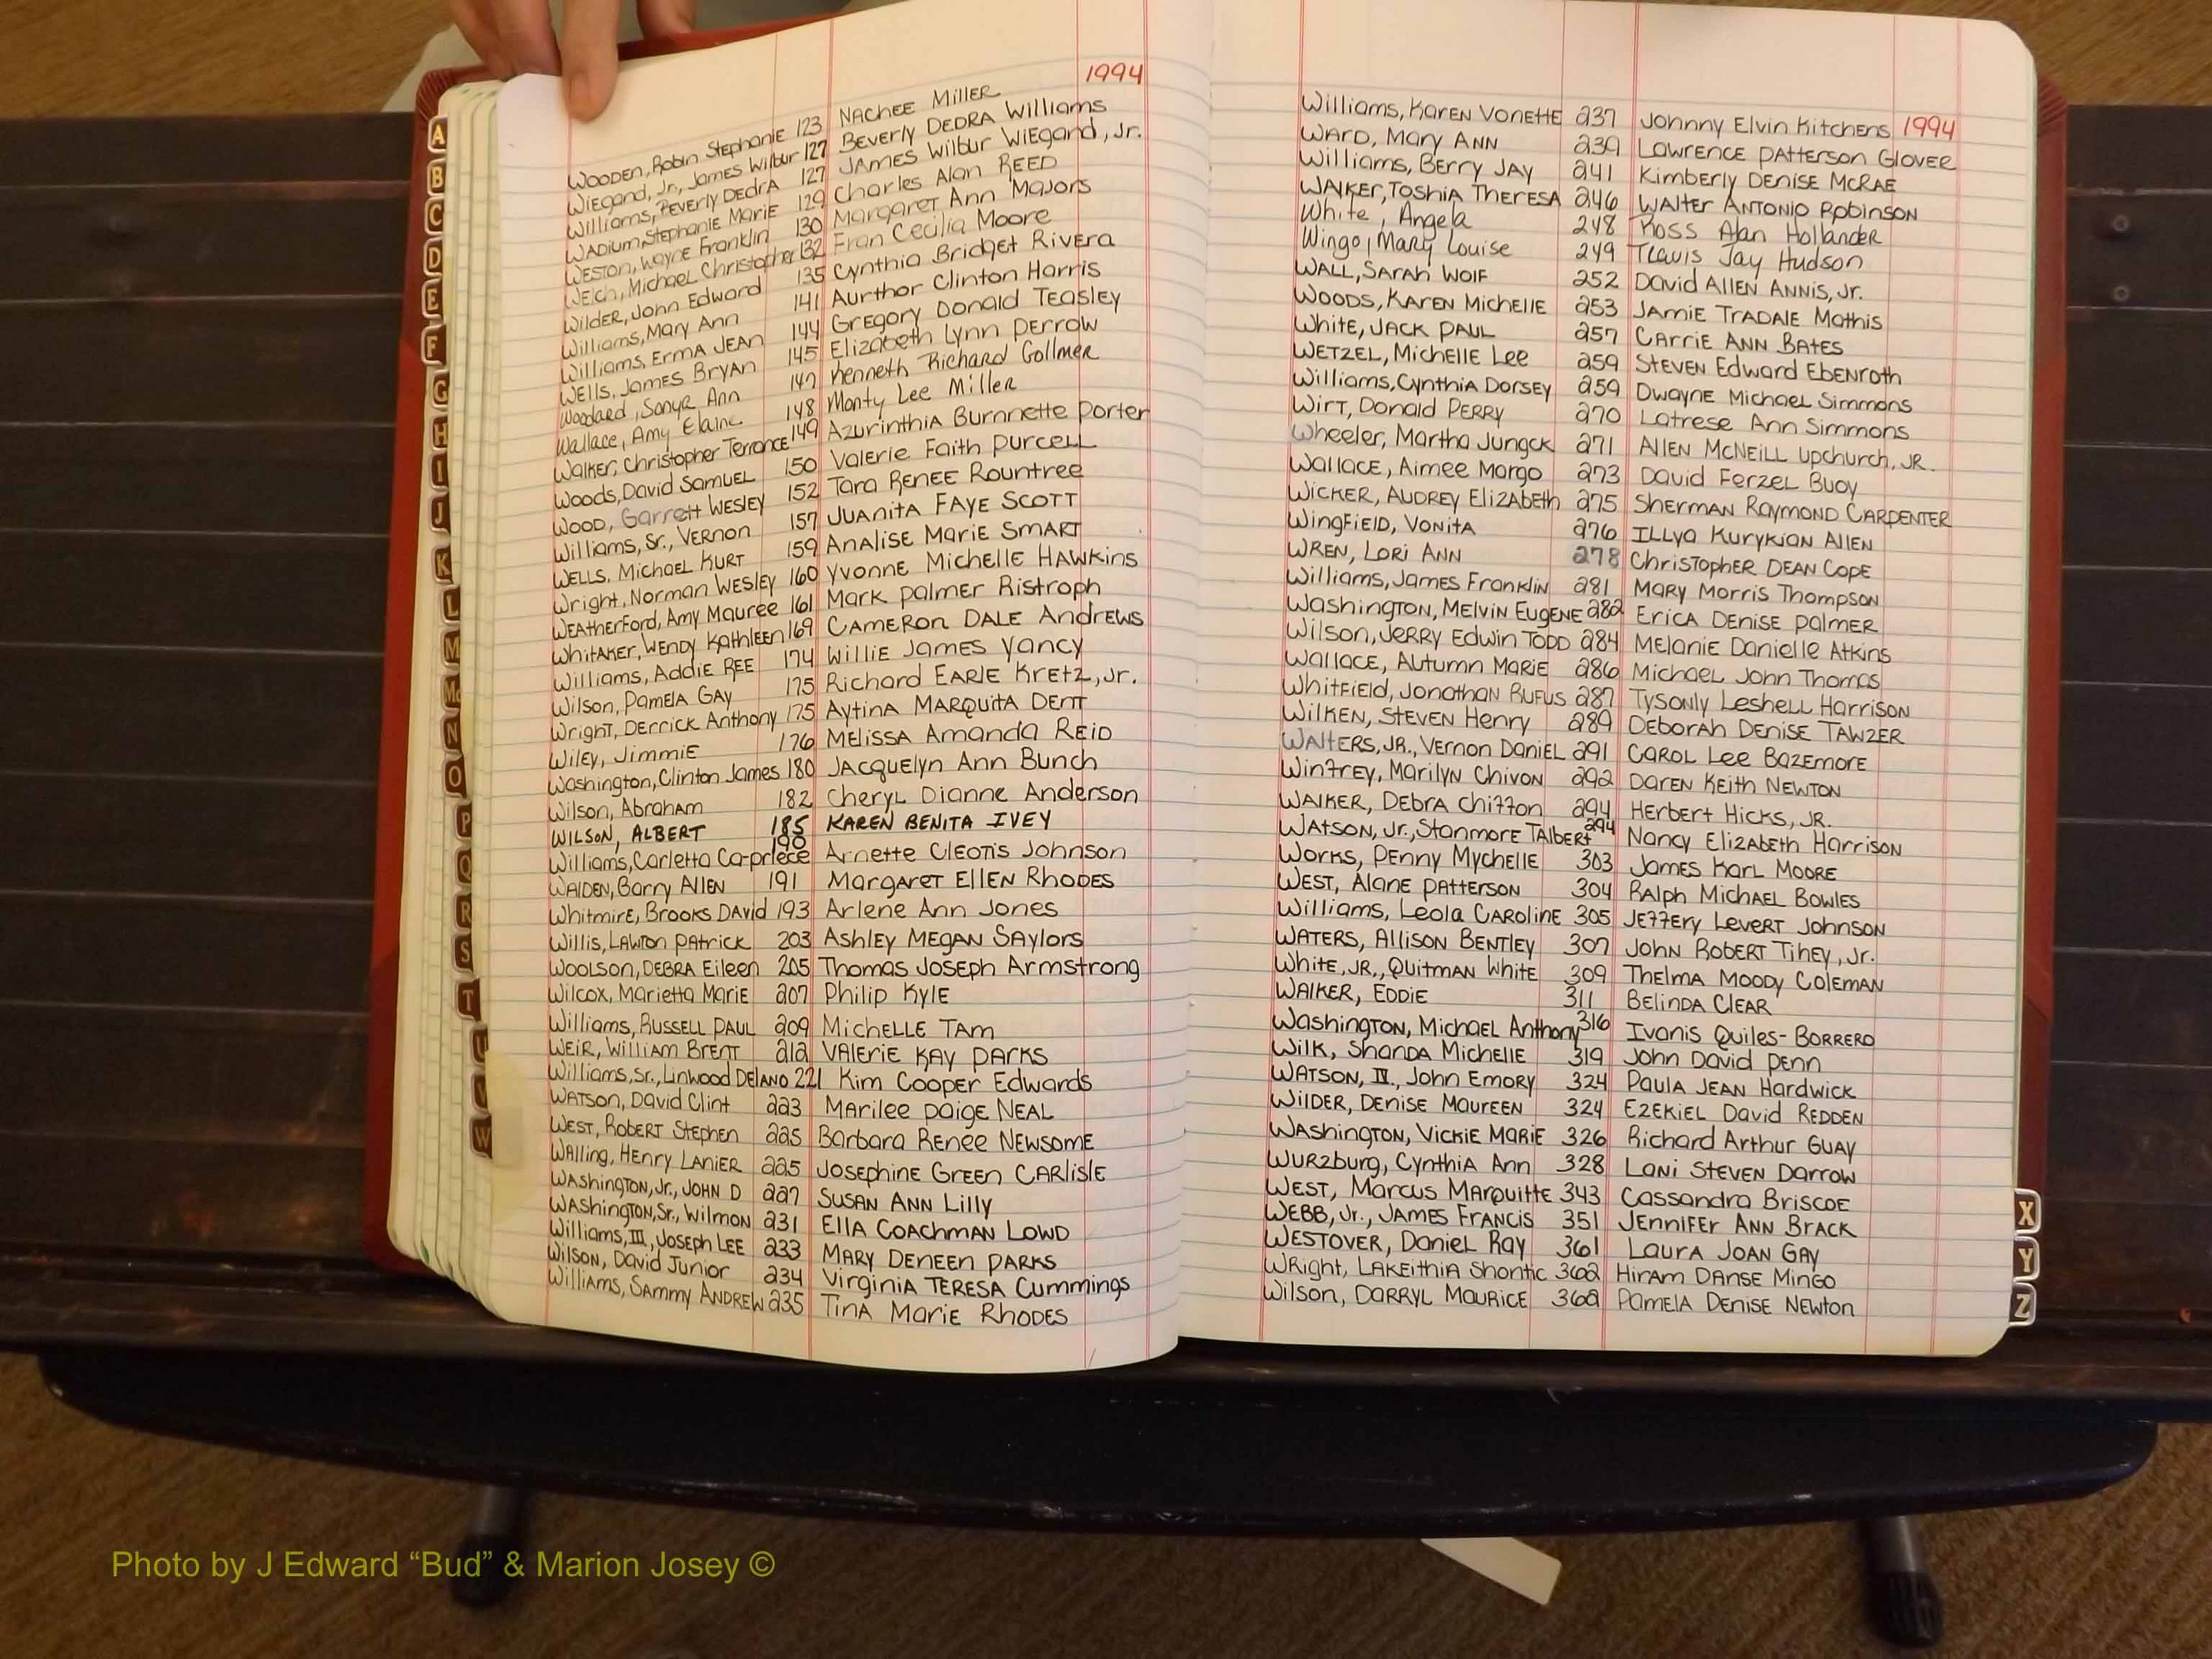 1994
Wooden, Robin Stephanie 123 Nachee Miller
Wiegand, Jr., James Wilbur 127 Beverly Dedra Williams
Williams, Beverly Dedra 127 James Wilbur Wiegand, Jr.
Wadium, Stephanie Marie 129 Charles Alan Reed
Weston, Wayne Franklin 130 Margaret Ann Majors
Welch, Michael Christopher 132 Fran Cecilia Moore
Wilder, John Edward 135 Cynthia Bridget Rivera
Williams, Mary Ann 141 Aurthor Clinton Harris
Williams, Erma Jean 144 Gregory Donald Teasley
Wells, James Bryan 145 Elizabeth Lynn Perrow
Woodard, Sonya Ann 147 Kenneth Richard Gollmer
Wallace, Amy Elaine 148 Monty Lee Miller
Walker, Christopher Terrance 149 Azurinthia Burnnette Porter
Woods, David Samuel 150 Valerie Faith Purcell
Wood, Garrett Wesley 152 Tara Renee Rountree
Williams, Sr., Vernon 157 Juanita Faye Scott
Wells, Michael Kurt 159 Analise Marie Smart
Wright, Norman Wesley 160 Yvonne Michelle Hawkins
Weatherford, Amy Mauree 161 Mark Palmer Ristroph
Whitaker, Wendy Kathleen 169 Cameron Dale Andrews
Williams, Addie Ree 174 Willie James Yancy
Wilson, Pamela Gay 175 Richard Earle Kretz, Jr.
Wright, Derrick Anthony 175 Aytina Marquita Dent
Wiley, Jimmie 176 Melissa Amanda Reid
Washington, Clinton James 180 Jacquelyn Ann Bunch
Wilson, Abraham 182 Cheryl Dianne Anderson
Wilson, Albert 185 Karen Benita Ivey
Williams, Carletta Ca-priece 190 Arnette Cleotis Johnson
Walden, Barry Allen 191 Margaret Ellen Rhodes
Whitmire, Brooks David 193 Arlene Ann Jones
Willis, Lawton Patrick 203 Ashley Megan Saylors
Woolson, Debra Eileen 205 Thomas Joseph Armstrong
Wilcox, Marietta Marie 207 Philip Kyle
Williams, Russell Paul 209 Michelle Tam
Weir, William Brent 212 Valerie Kay Parks
Williams, Sr., Linwood Delano 221 Kim Cooper Edwards
Watson, David Clint 223 Marilee Paige Neal
West, Robert Stephen 225 Barbara Renee Newsome
Walling, Henry Lanier 225 Josephine Green Carlisle
Washington, Jr., John D 227 Susan Ann Lilly
Washington, Sr., Wilmon 231 Ella Coachman Lowd
Williams, III, Joseph Lee 233 Mary Deneen Parks
Wilson, David Junior 234 Virginia Teresa Cummings
Williams, Sammy Andrew 235 Tina Marie Rhodes
Williams, Karen Vonette 237 Johnny Elvin Kitchens 1994
Ward, Mary Ann 239 Lawrence Patterson Glover
Williams, Berry Jay 241 Kimberly Denise McRae
Walker, Toshia Theresa 246 Walter Antonio Robinson
White, Angela 248 Ross Alan Hollander
Wingo, Mary Louise 249 Travis Jay Hudson
Wall, Sarah Wolf 252 David Allen Annis, Jr.
Woods, Karen Michelle 253 Jamie Tradale Mathis
White, Jack Paul 257 Carrie Ann Bates
Wetzel, Michelle Lee 259 Steven Edward Ebenroth
Williams, Cynthia Dorsey 259 Dwayne Michael Simmons
Wirt, Donald Perry 270 Latrese Ann Simmons
Wheeler, Martha Jungck 271 Allen McNeill Upchurch, Jr.
Wallace, Aimee Margo 273 David Ferzel Buoy
Wicker, Audrey Elizabeth 275 Sherman Raymond Carpenter
Wingfield, Vonita 276 Illya Kurykian Allen
Wren, Lori Ann 278 Christopher Dean Cope
Williams, James Franklin 281 Mary Morris Thompson
Washington, Melvin Eugene 282 Erica Denise Palmer
Wilson, Jerry Edwin Todd 284 Melanie Danielle Atkins
Wallace, Autumn Marie 286 Michael John Thomas
Whitfield, Jonathan Rufus 287 Tysonly Leshell Harrison
Wilken, Steven Henry 289 Deborah Denise Tawzer
Walters, Jr., Vernon Daniel 291 Carol Lee Bazemore
Winfrey, Marilyn Chivon 292 Daren Keith Newton
Walker, Debra Chiffon 294 Herbert Hicks, Jr.
Watson, Jr., Stanmore Talbert 294 Nancy Elizabeth Harrison
Works, Penny Mychelle 303 James Karl Moore
West, Alane Patterson 304 Ralph Michael Bowles
Williams, Leola Caroline 305 Jeffery Levert Johnson
Waters, Allison Bentley 307 John Robert Tihey, Jr.
White, Jr., Quitman White 309 Thelma Moody Coleman
Walker, Eddie 311 Belinda Clear
Washington, Michael Anthony 316 Ivonis Quiles-Borrero
Wilk, Shanda Michelle 319 John David Penn
Watson, IV., John Emory 324 Paula Jean Hardwick
Wilder, Denise Maureen 324 Ezekiel David Redden
Washington, Vickie Marie 326 Richard Arthur Guay
Wurzburg, Cynthia Ann 328 Lani Steven Darrow
West, Marcus Marquitte 343 Cassandra Briscoe
Webb, Jr., James Francis 351 Jennifer Ann Brack
Westover, Daniel Ray 361 Laura Joan Gay
Wright, Lakeithia Shontic 362 Hiram Danse Mingo
Wilson, Darryl Maurice 362 Pamela Denise Newton
A
B
C
D
E
F
G
H
I
J
K
L
M
Mc
N
O
P
Q
R
S
T
U
W
X
Y
Z
Photo by J Edward “Bud” & Marion Josey ©